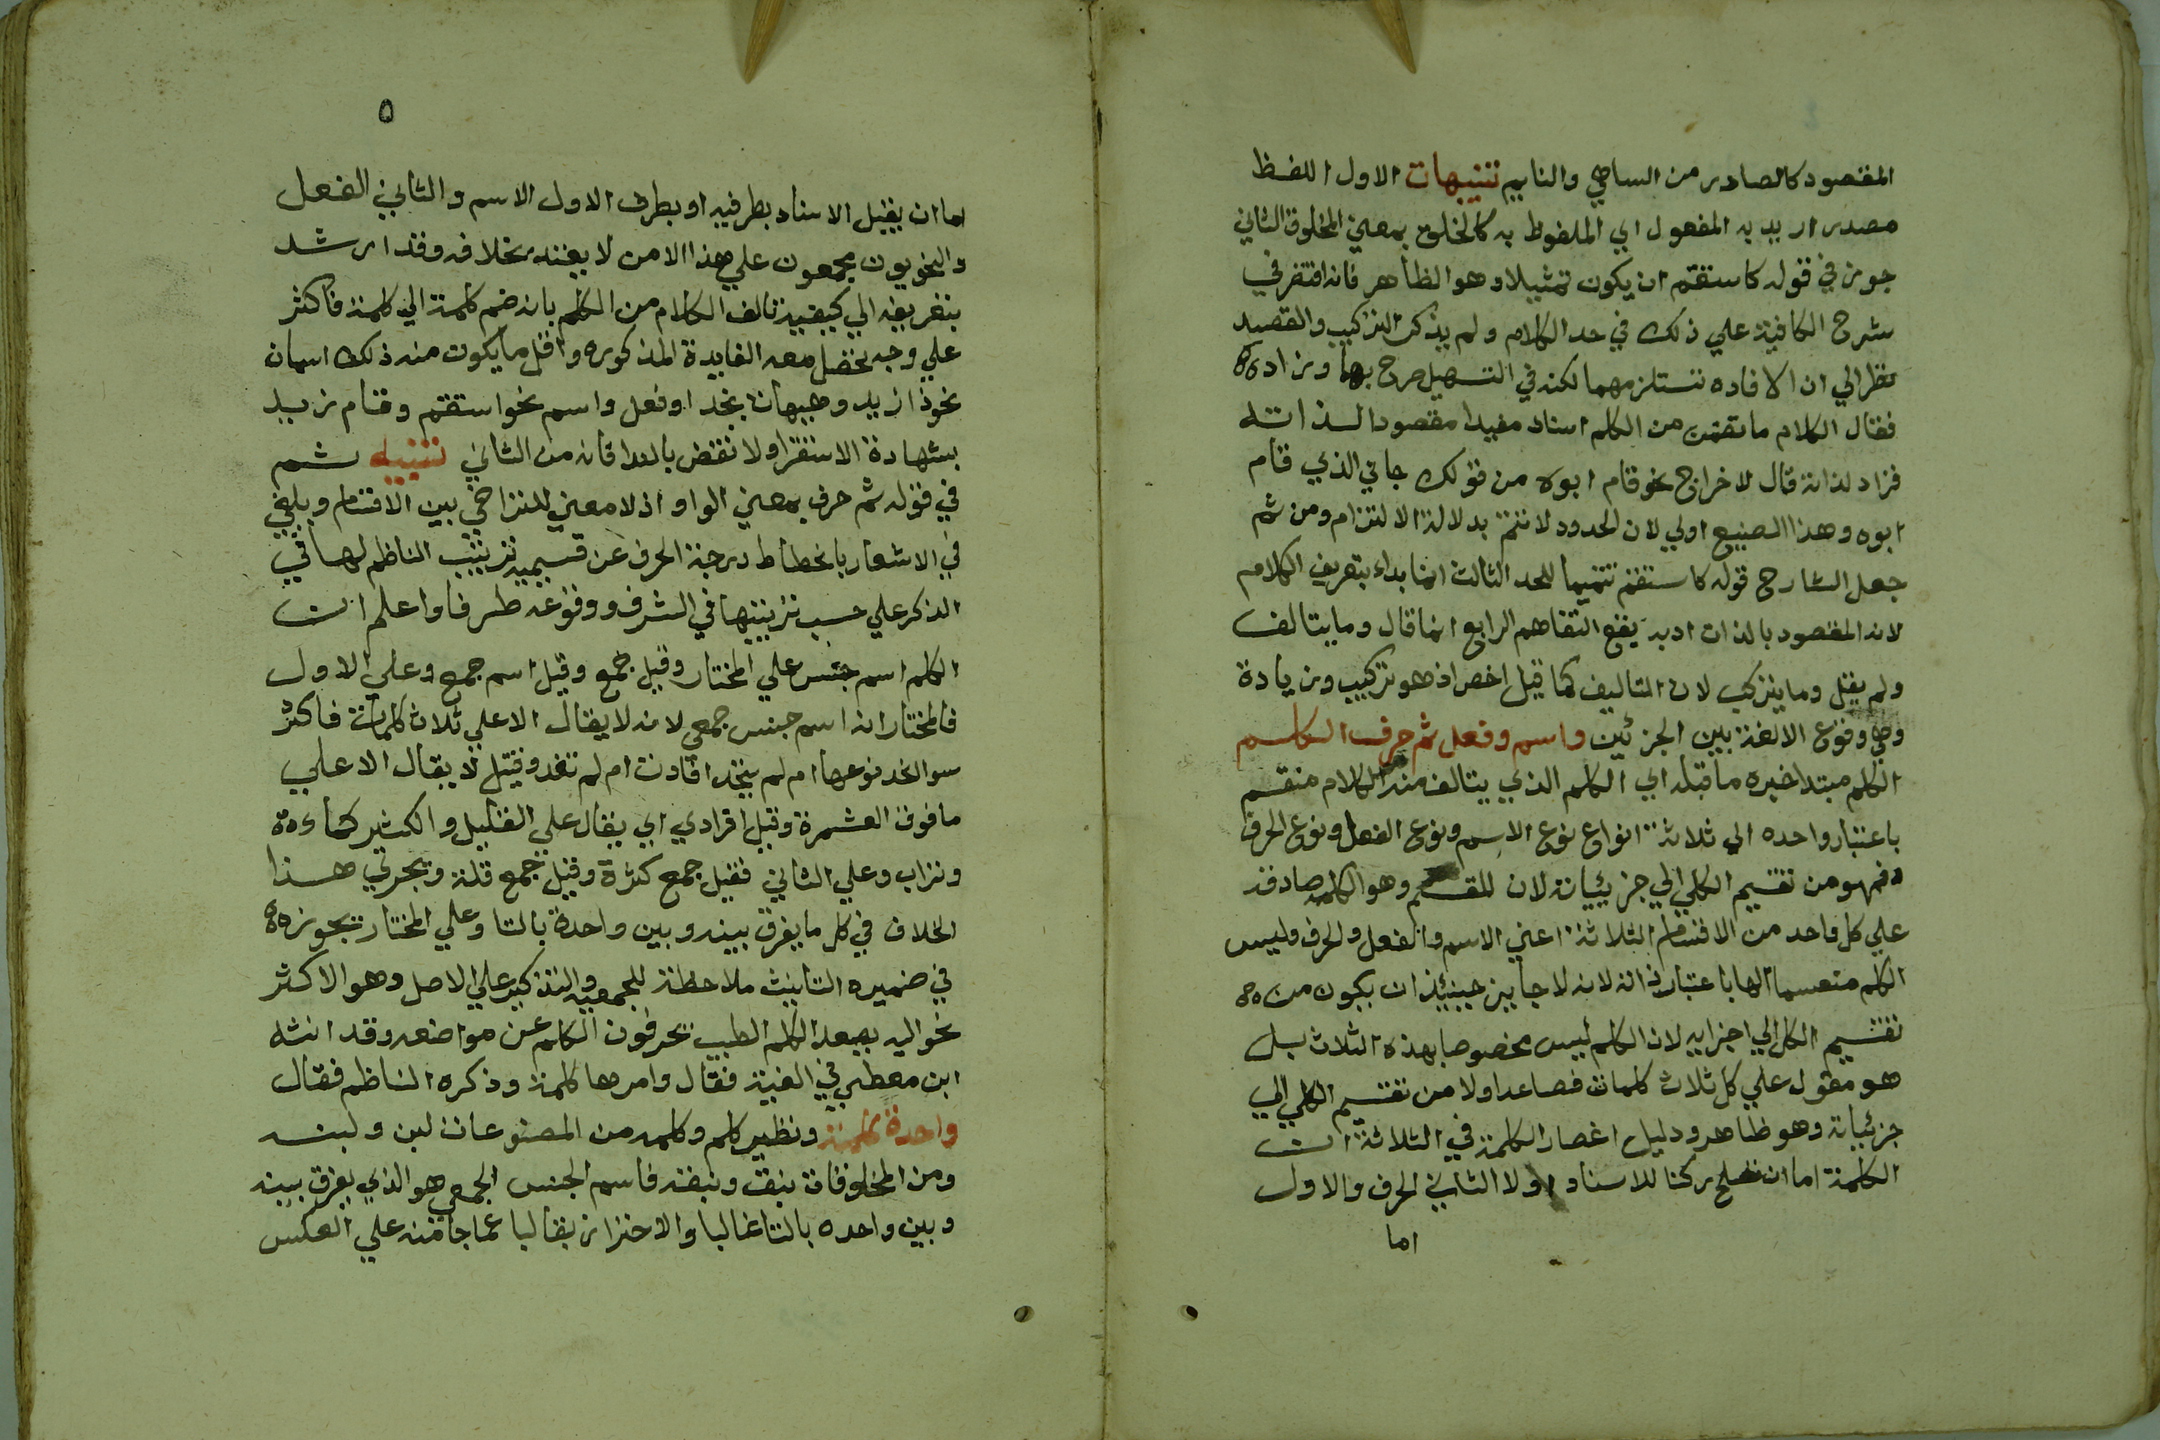 المقصود كالصادر من الساهي والنايم تنبيهات الاول اللفظ
مصدر اريد به المفعول اي الملفوظ به كالخلق بمعني المخلوق الثاني
جوز في قوله كاستقم ان يكون تمثيلا وهو الظاهر فانه اقتصر في
شرح الكافية علي ذلك في حد الكلام ولم يذكر التركيب والقصد
نظر الي ان الافاده تستلزمهما لكنه في التسهيل صرح بهما وزاد
فقال الكلام ما تضمن من الكلم اسناد مفيدا مقصودا لذاته
فزاد لذاته قال لاخراج نحو قام ابوه من قولك جاني الذي قام
ابوه وهذا الصنيع اولي لان الحدود لا تتم بدلالة الالتزام ومن ثم
جعل الشارح قوله كاستقم تتميما للحد الثالث انما بداء بتعريف الكلام
لانه المقصود بالذات اذ به يقع التفاهم الرابع انما قال وما يتالف
ولم يقل وما يتركب لان التاليف كما قيل اخص اذ هو تركيب وزيادة
وهي وقوع الالفة بين الجزئين واسم وفعل ثم حرف الكلم
الكلم مبتدا خبره ما قبله اي الكلم الذي يتالف منه الكلام منقسم
باعتبار واحده الي ثلاثة انواع نوع الاسم ونوع الفعل ونوع الحرف
فهو من تقسيم الكلي الي جزيياته لان المقسم وهو الكلمه صادقه
علي كل واحد من الاقسام الثلاثة اعني الاسم والفعل والحرف وليس
الكلم منقسما اليها باعتبار ذاته لانه لا جايز حينيذ ان يكون من
تقسيم الكل الي اجزايه لان الكلم ليس مخصوصا بهذه الثلاث بل
هو مقول علي كل ثلاث كلمات فصاعدا ولا من تقسيم الكلي الي
جزئياته وهو ظاهر ودليل انحصار الكلمة في الثلاثة ان
الكلمة اما ان تصلح ركنا للاسناد اولا الثاني الحرف والاول
اما
٥
اما ان يقبل الاسناد بطرفيه او بطرف الاول الاسم والثاني الفعل
والنحويون مجمعون علي هذا الا من لا يعتد بخلافه وقد ارشد
بتعريفه الي كيفية تالف الكلام من الكلم بانه ضم كلمة الي كلمة فاكثر
علي وجه تحصل معه الفايدة المذكوره واقل ما يكون منه ذلك اسمان
نحو ذا زيد وهيهات نجد او فعل واسم نحو استقم وقام زيد
بشهادة الاستقرا ولا نقض بالندا فانه من الثاني تنبيه ثم
في قوله ثم حرف بمعني الواو اذ لا معني للتراخي بين الاقسام ويكفي
في الاشعار بانحطاط درجة الحرف عن قسيميه ترتيب الناظم لها في
الذكر علي حسب ترتيبها في الشرف ووقوعه طرفا واعلم ان
الكلم اسم جنس علي المختار وقيل جمع وقيل اسم جمع وعلي الاول
فالمختار انه اسم جنس جمعي لانه لا يقال الا علي ثلاث كلمات فاكثر
سوا اتحد نوعها ام لم يتحد افادت ام لم تفد وقيل لا يقال الا علي
ما فوق العشرة وقيل افرادي اي يقال علي القليل والكثير كماء
وتراب وعلي الثاني فقيل جمع كثرة وقيل جمع قلة ويجري هذا
الخلاف في كل ما يفرق بينه وبين واحدة بالتا وعلي المختار تجوز
في ضميره التانيث ملاحظة للجمعيه والتذكير علي الاصل وهو الاكثر
نحو اليه يصعد الكلم الطيب يحرفون الكلم عن مواضعه وقد انثه
ابن معطي في الفيته فقال وامرها كلمة وذكره الناظم فقال
واحدة كلمة ونظير كلم وكلمه من المصنوعات لبن ولبنه
ومن المخلوقات نبق ونبقه فاسم الجنس الجمعي هو الذي يفرق بينه
وبين واحده بالتا غالبا والاحتراز بغالبا عما جا منه علي العكس